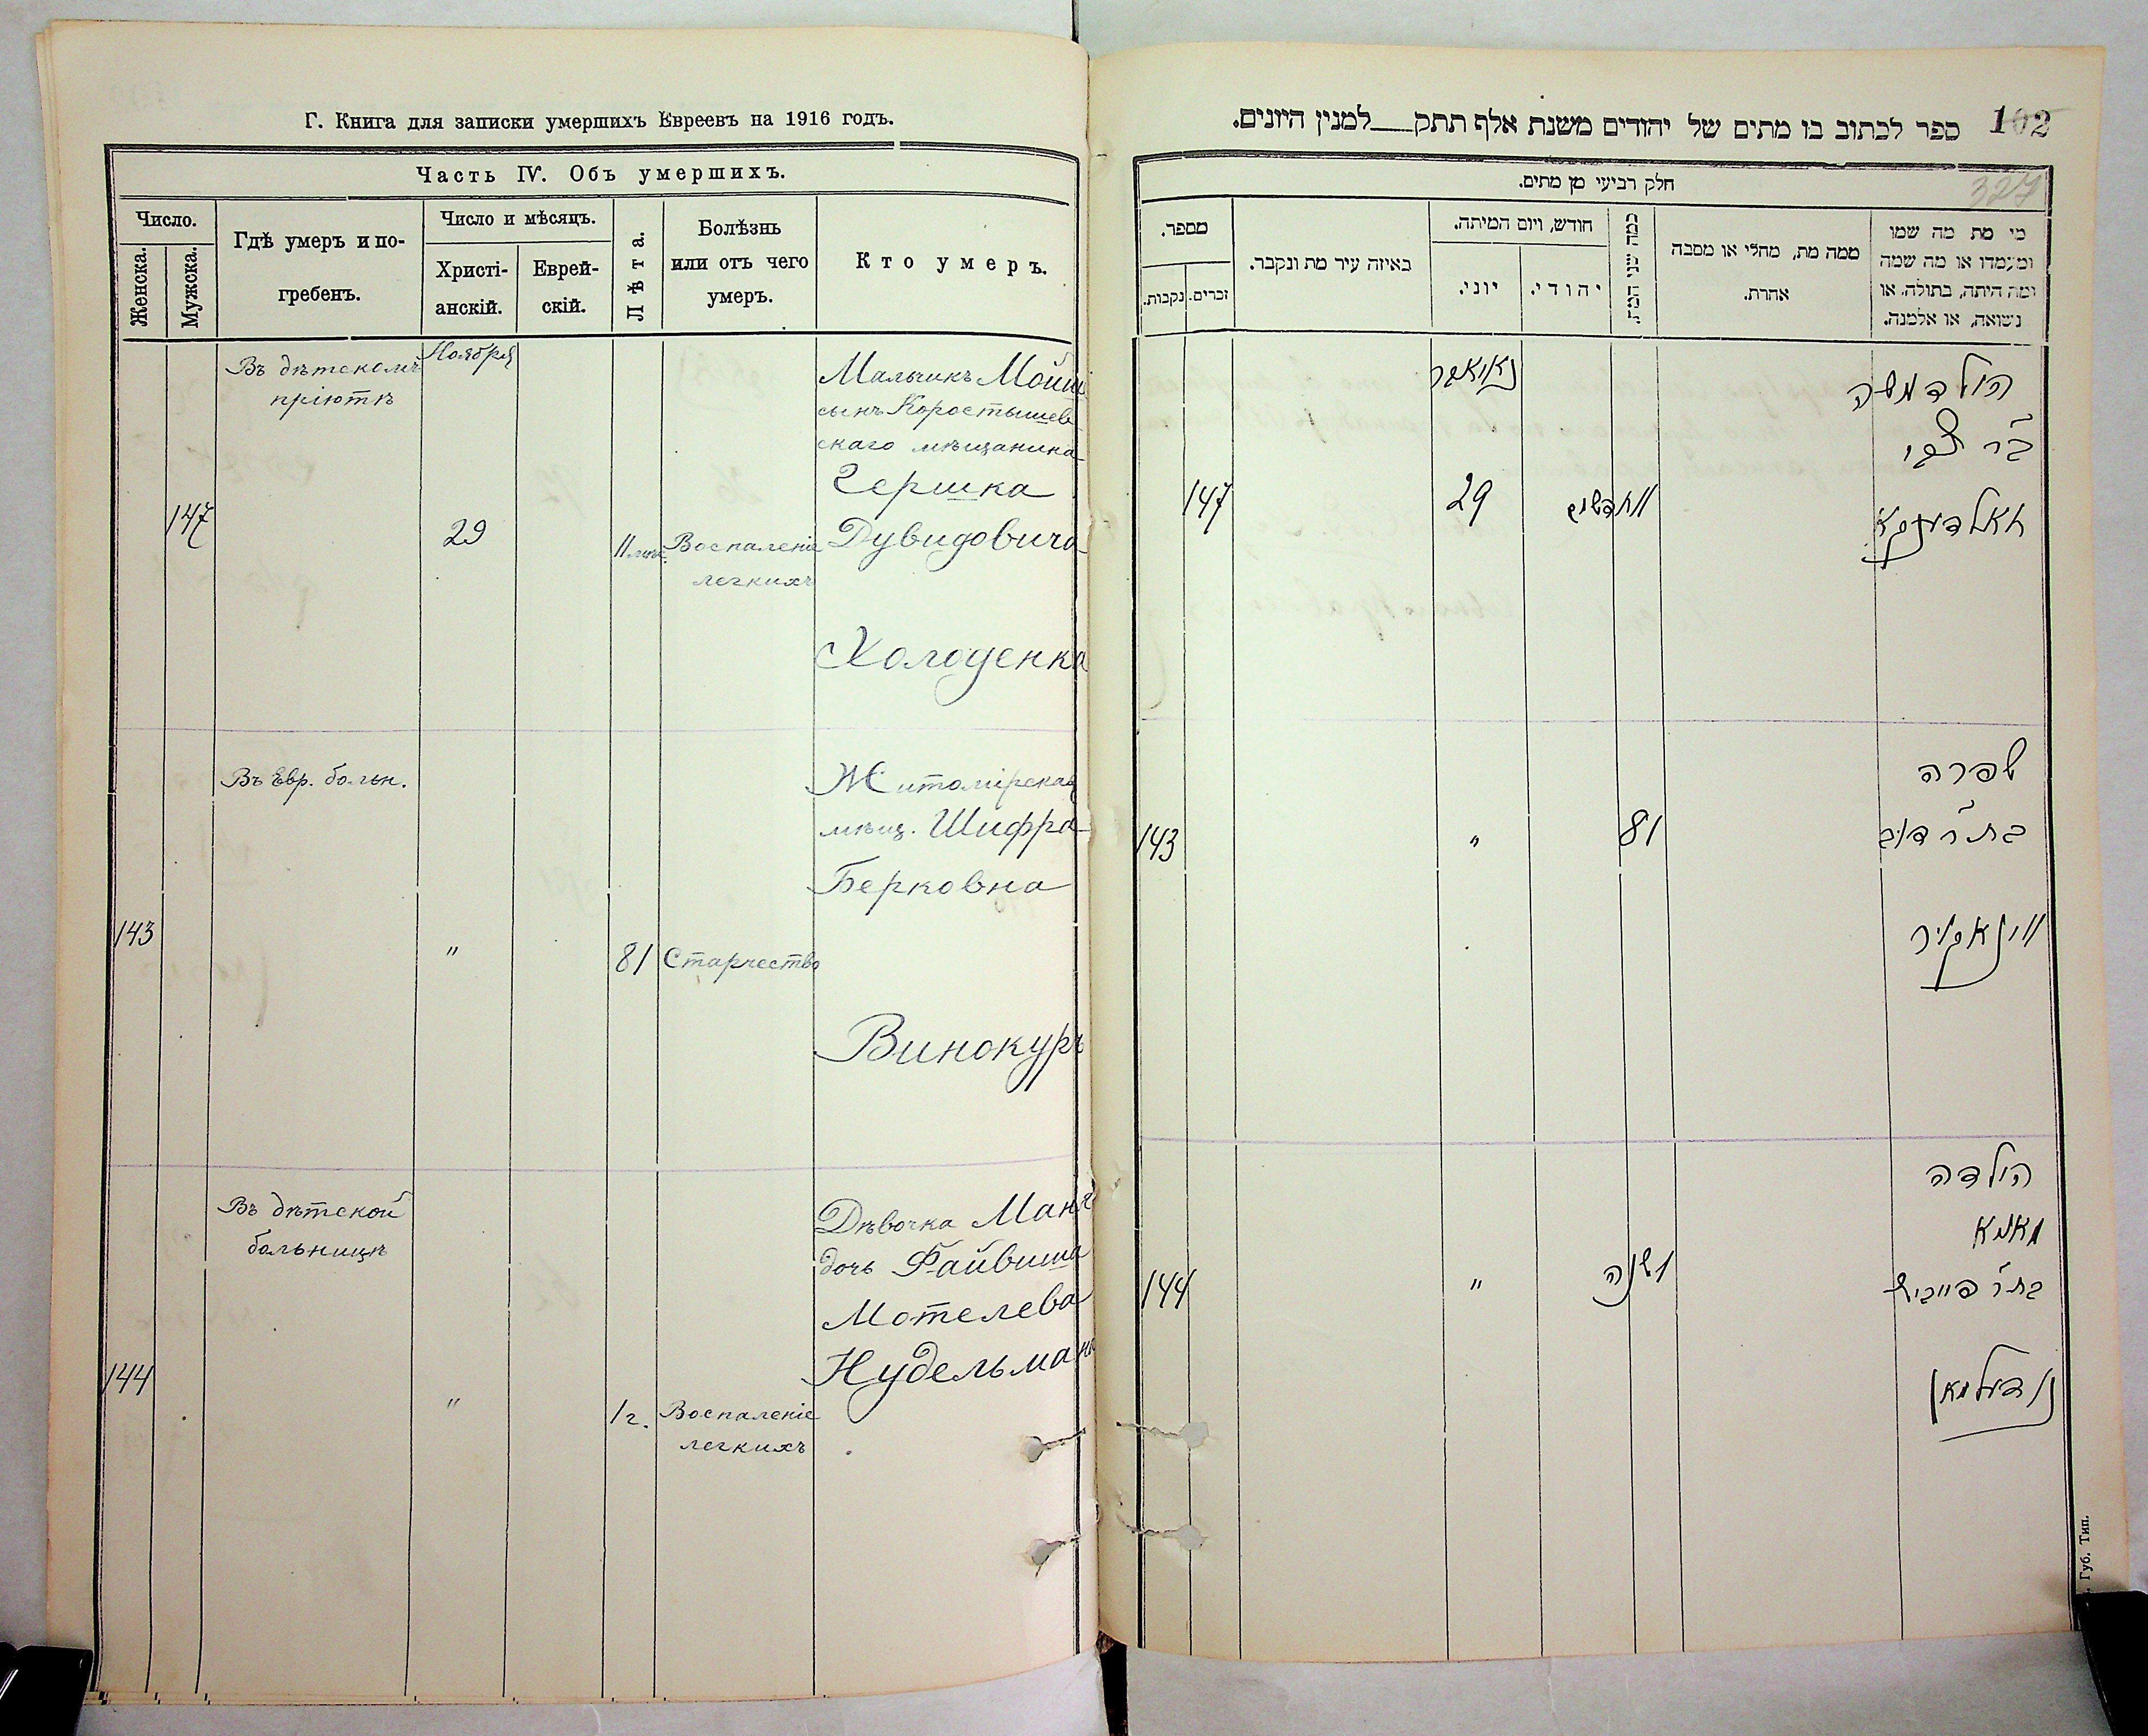 Г. Книга для записки умершихъ Евреевъ на 1916 годъ.
Часть IV. Объ умершихъ.
Число.
Женска.
Мужска.
Гдѣ умеръ и по-
гребенъ.
Число и мѣсяцъ.
Христі-
анскій.
Еврей-
скій.
Лѣта.
Болѣзнь
или отъ чего
умеръ.
Кто умеръ.
147
Въ дѣтскомъ
пріютѣ
Ноября
29
11 мѣс.
Воспаленіе
легкихъ
Мальчикъ Мойше
сынъ Коростышев-
скаго мѣщанина
Гершка
Дувидовича
Холоденка
143
Въ Евр. больн.
"
81
Старчество
Житомірская
мѣщ. Шифра
Берковна
Винокуръ
144
Въ дѣтской
больницѣ
"
1 г.
Воспаленіе
легкихъ
Дѣвочка Маня
дочь Файвиша
Мотелева
Нудельмана
ספר לכתוב בו מתים של יהודים משנת אלף תתק___למנין היונים.
102
327
חלק רביעי מן מתים.
מספר.
נקבות.
זכרים.
באיזה עיר מת ונקבר.
חודש, ויום המיתה.
יוני.
יהודי.
כמה שני המת
ממה מת, מחלי או מסבה
אחרת.
מי מת מה שמו
ומעמדו או מה שמה
ומה היתה, בתולה, או
נשואה, או אלמנה.
הילד משה
ב"ר צבי
חאלדענקא
11 חדשים
נאיאבר
29
147
שפרה
בת ר' דוב
ווינאקור
81
"
143
הילדה
מאניא
בת ר' פייביש
נודעלמאן
1 שנה
"
144
Губ. Тип.